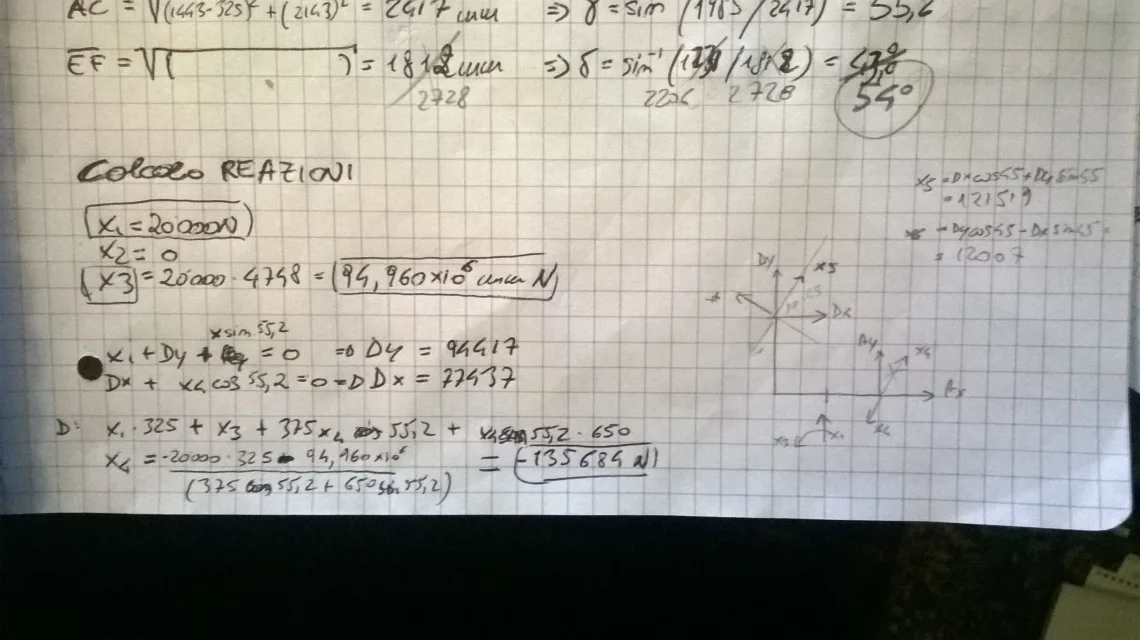 AC = √(1443-325)² + (2143)² = 2417 mm => γ = sin (1985 / 2417) = 55,2
EF = √( ) = 1812 mm => δ = sin⁻¹ ( /1812) =
2728 2206 2728 54°
Calcolo REAZIONI
X1 = 20000N
X2 = 0
X3 = 20000 · 4748 = 94,960x10⁶ mm N
x sin 55,2
X1 + Dy + = 0 => Dy = 94417
Dx + X4 cos 55,2 = 0 => Dx = 77437
D: X1 · 325 + X3 + 375 X4 cos 55,2 + X4 sen 55,2 · 650
X4 = -20000 · 325 - 94,960x10⁶ = -135684 N
(375 cos 55,2 + 650 sen 55,2)
X5 = Dx cos 55 + Dy sin 55
= 121519
= Dy cos 55 - Dx sin 55 =
= 12007
Dy X5
Dx
Ay X4
Ax
X4
X3 X1